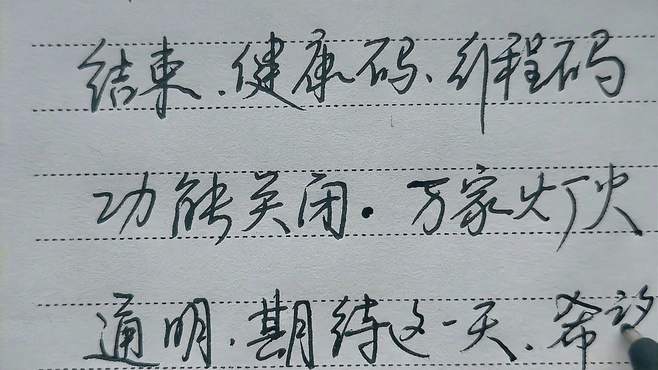 结束、健康码、行程码
功能关闭。万家灯火
通明，期待这一天，希